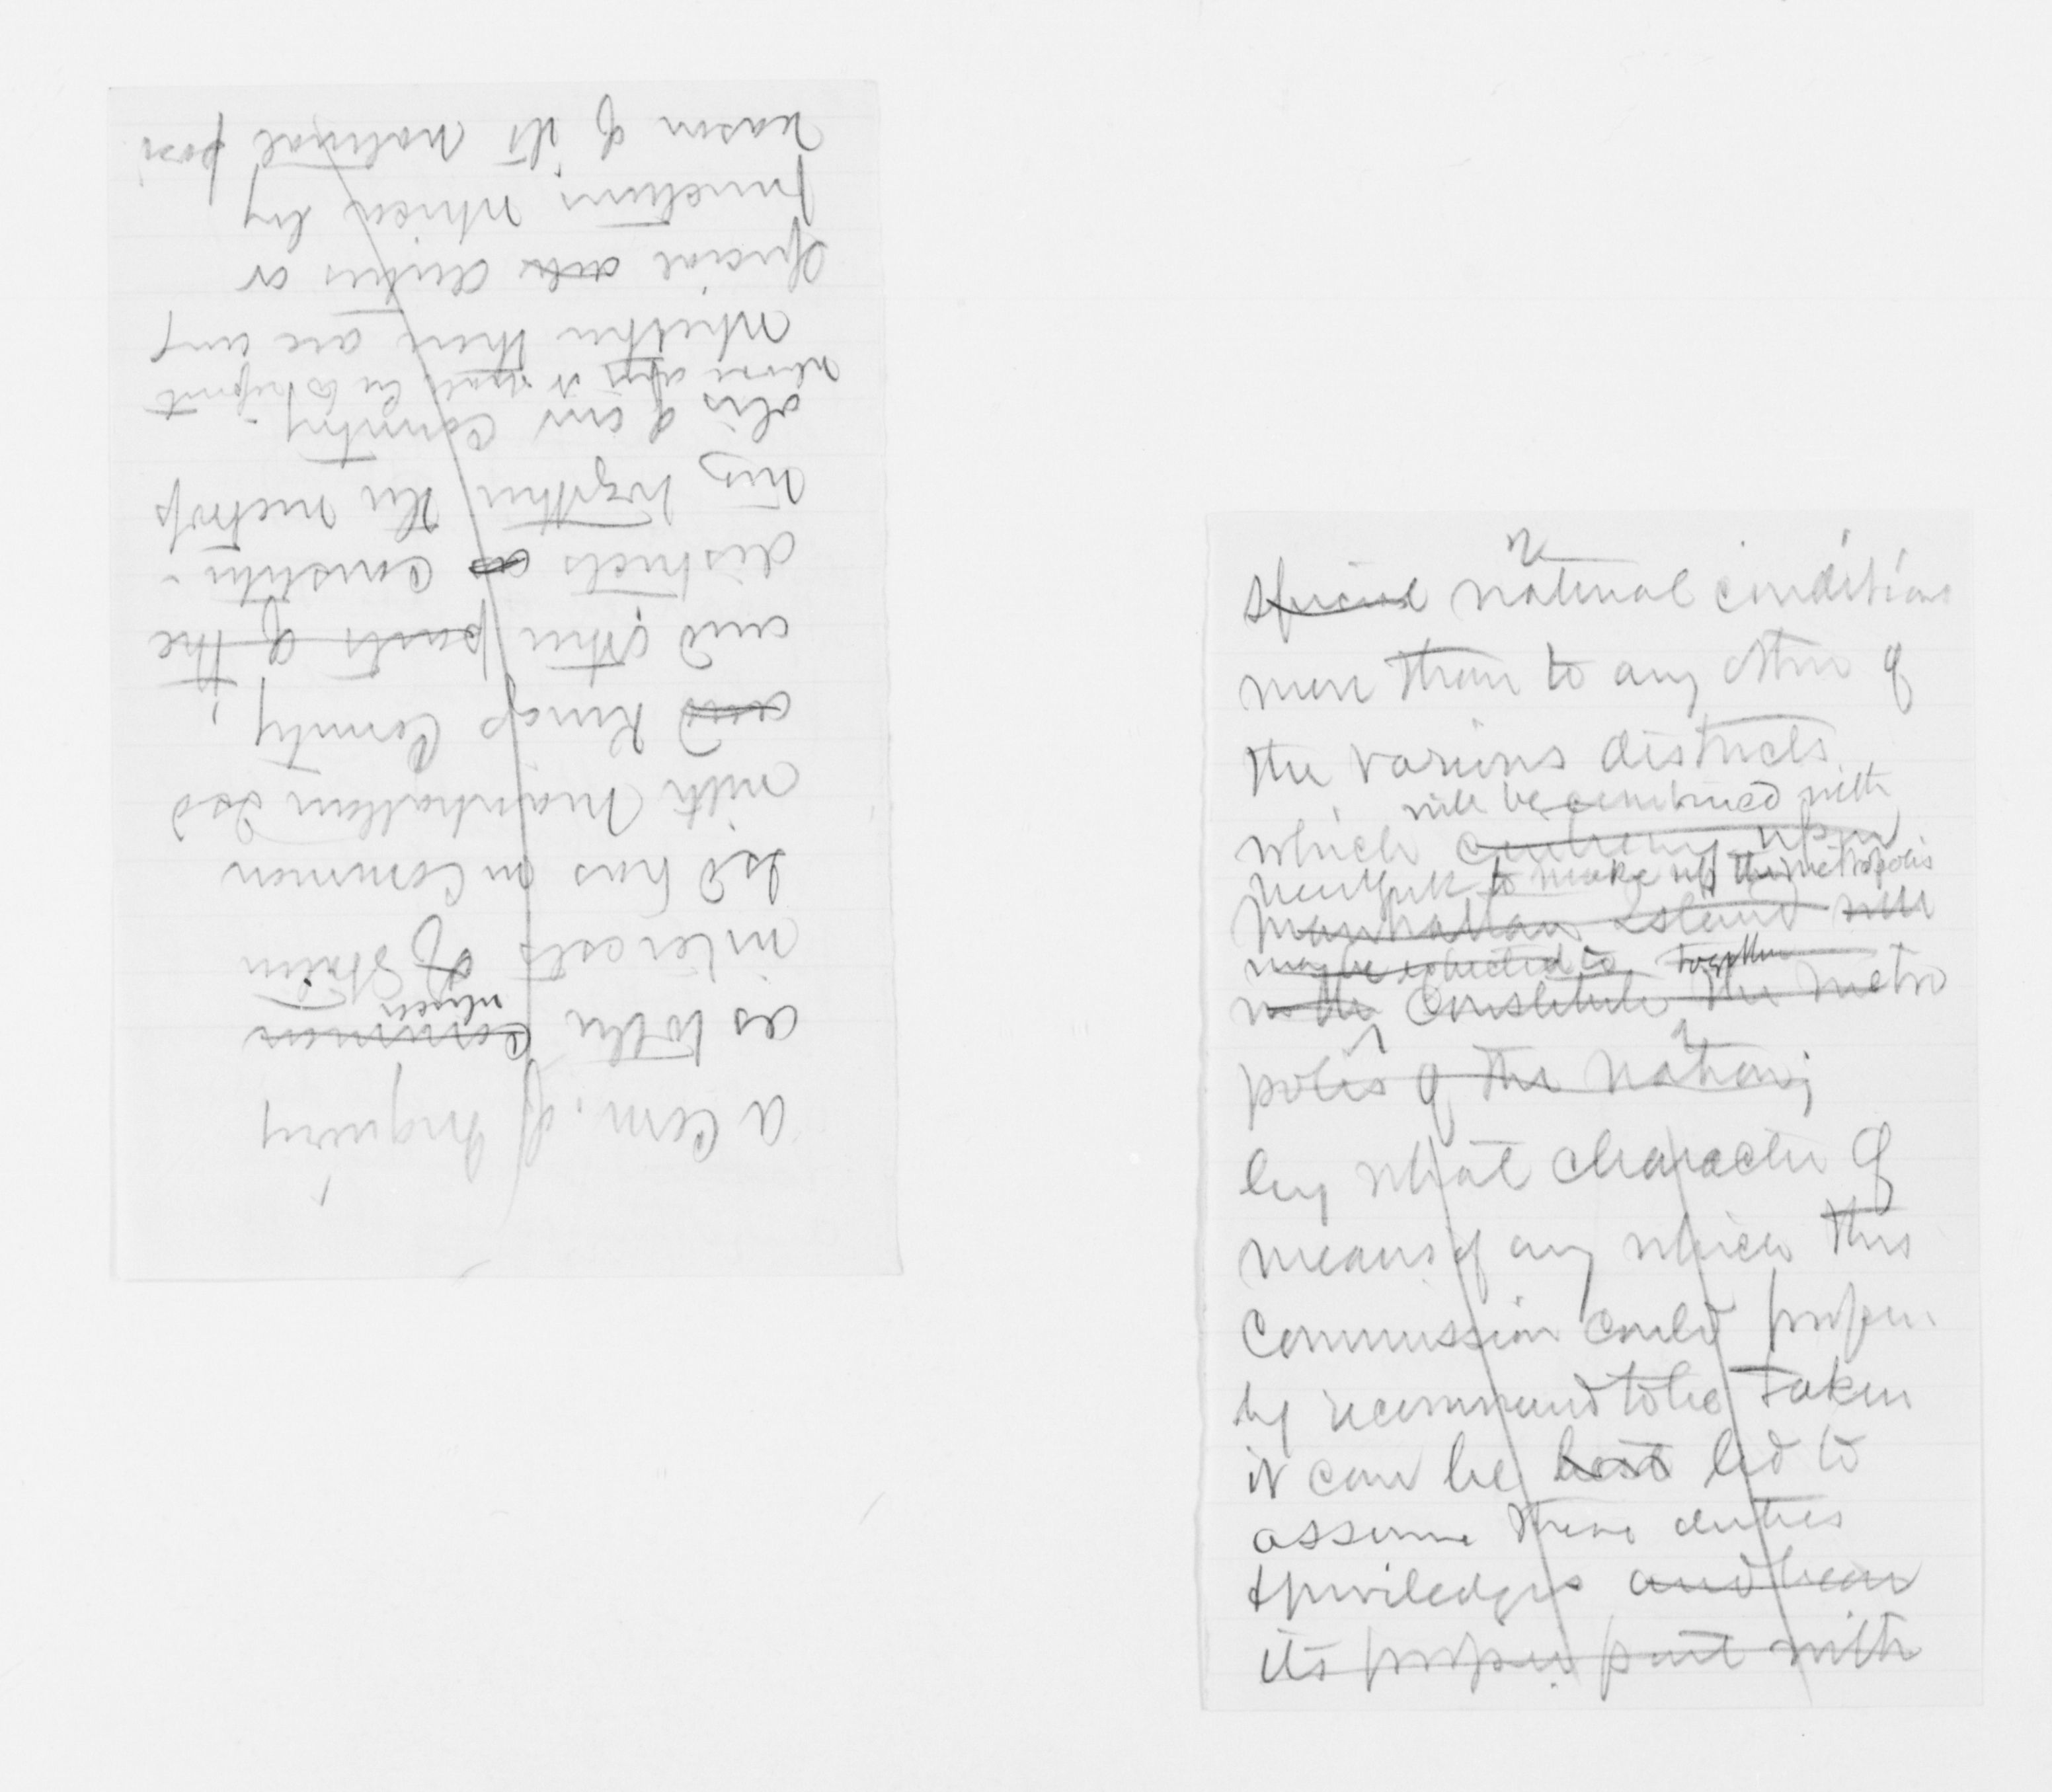 a Com. of Inquiry
as to the common
which
interests of Staten
Isd has in common
with Manhattan Isd
and Kings County,
and other parts of the
districts as constitu-
ting together the metrop
olis of our country;
whose duty it shall be to report
whether there are any
special duties or
functions which by
reason of its natural posi
special natural conditions
more than to any other of
the various districts
will be combined with
which centering upon
New York to make up the metropolis
Manhattan Island will
may be expected to together
constitute the metro
polis of the nation;
by what character of
means if any which this
Commission could proper
ly recommend to be taken
it can be best led to
assume these duties
& priviledges and bear
its proper part with